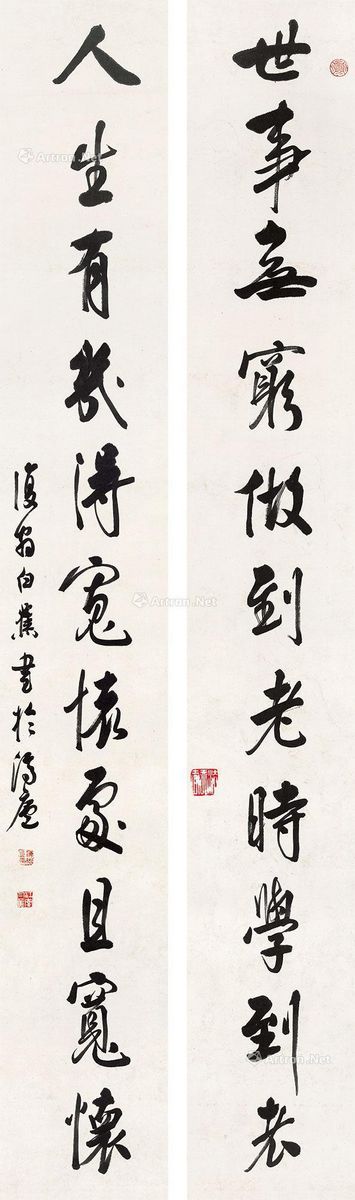 世事無窮做到老時學到老
人生有幾得寬懷處且寬懷
復翁白蕉書於廬
Artron.Net
Artron.Net
Artron.Net